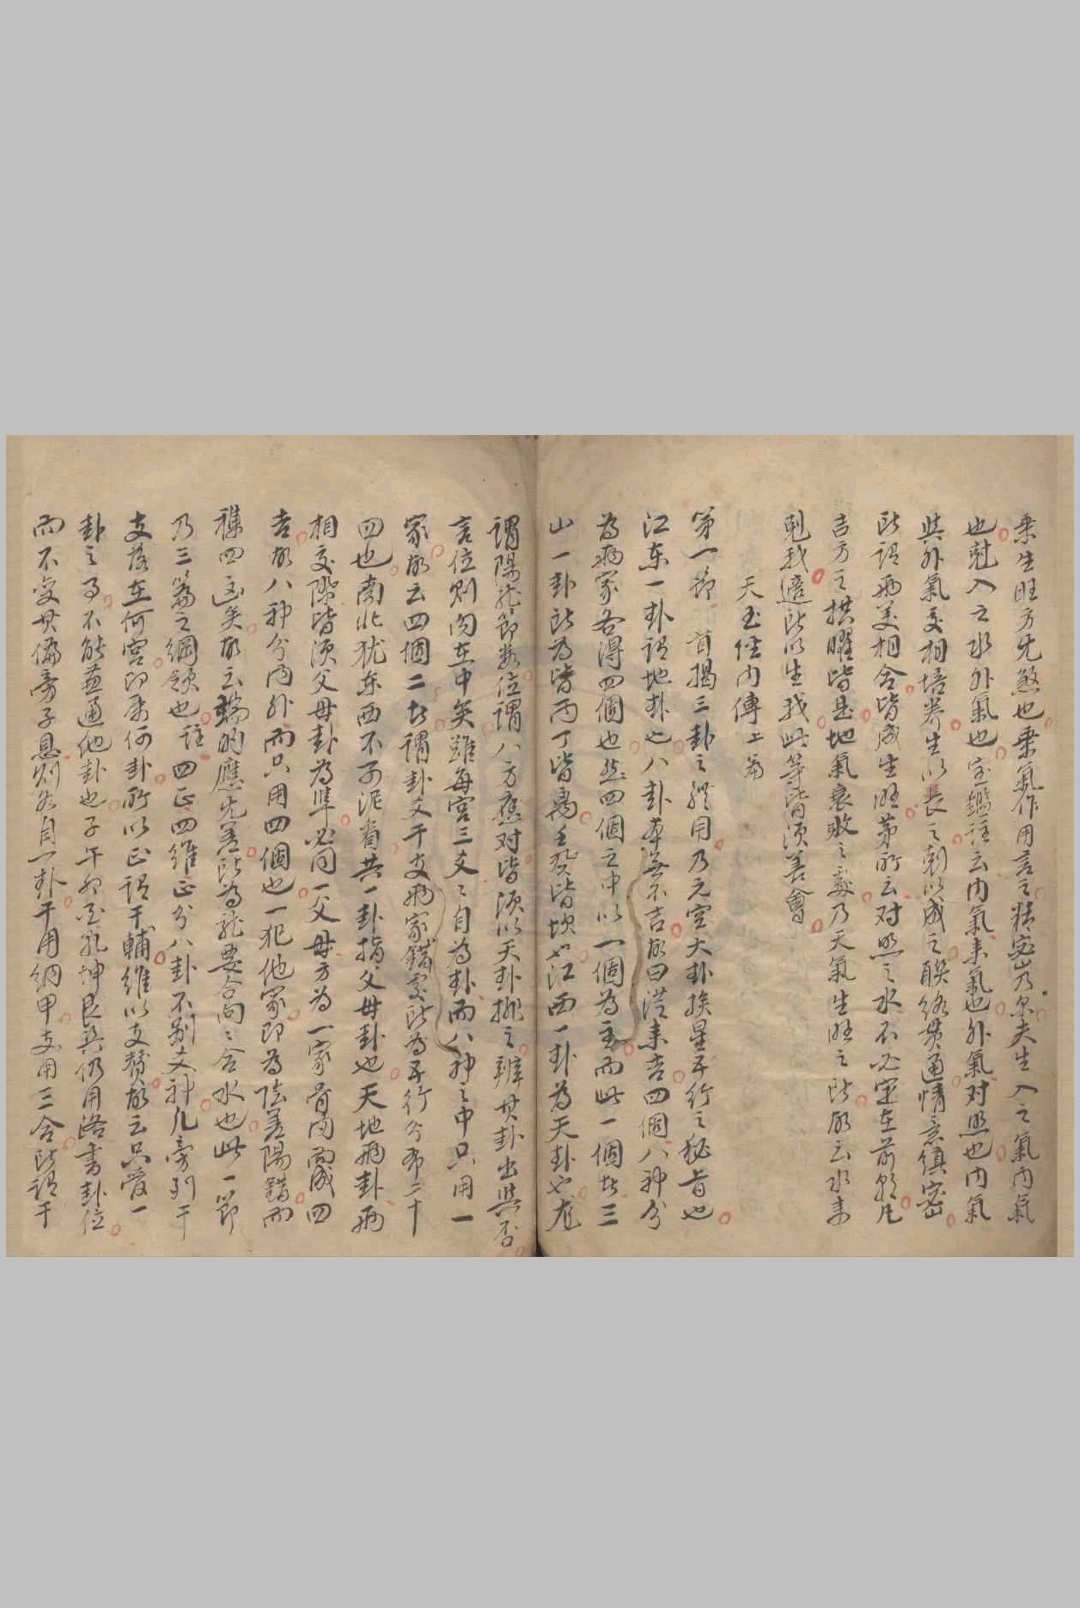 乘生旺方兄煞也乘氣作用言之精密此乃尔夫生入之氣內氣
也尅入之水外氣也宝鑑註云內氣來氣也外氣對照也內氣
與外氣交相培养生以長之剋以成之联絡貫通情意俱密
此謂兩美相合皆成生旺第所云对照之水不必定在前朝凡
吉方之拱曜皆是地氣衰敗之家乃天氣生旺之此故云水來
剋我適所以生我此等皆須善會
天玉經內傳上篇
第一節 首揭三卦之體用乃元空大卦挨星五行之秘旨也
江东一卦謂地卦也八卦本無不吉故曰從來吉四個八神分
為兩家各得四個也然四個之中以一個為主而此一個皆三
山一卦此為皆丙丁皆离壬癸皆坎也江西一卦為天卦也龙
謂陽龙節数位謂八方應对皆須以天卦排之辨其卦出與否
言位則向在中矣雖每宮三爻爻自為卦而八神之中只用一
家故云四個二者謂卦爻干支兩家錯處此為五行分布二十
四也南北犹东西不可泥看共一卦指父母卦也天地兩卦兩
相交際皆須父母卦為準必同一父母方為一家骨肉而成四
吉故八神分內外而只用四個也一犯他家即為陰差陽錯而
襍四凶矣故云端的應先善此為龙要合向向合水也此一節
乃三篇之綱領也註四正四維正分八卦不剃爻神凡旁列干
支落在何宮即屬何卦所以正謂干輔維以支赞故云只管一
卦之事不能普通他卦也子午卯酉乾坤艮巽仍用洛書卦位
而不受其偏旁子息則各自一卦干用納甲支用三合此謂干